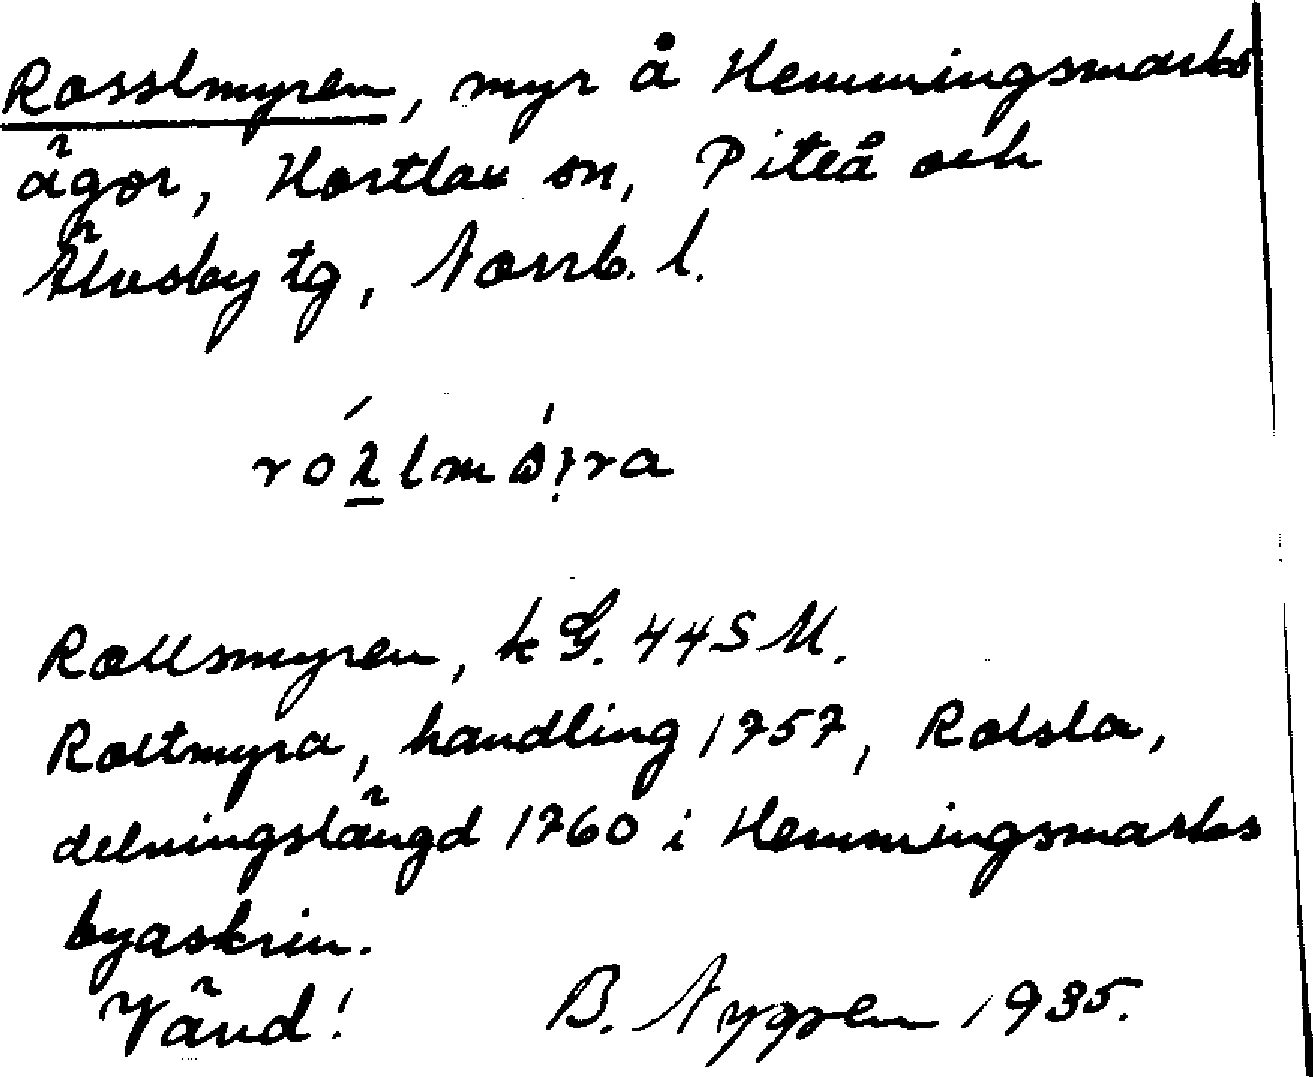 Rosslmyren, myr å Hemmingsmarks
ägor, Hortlax sn, Piteå och
Älvsby tg, Norrb. l.
Rollsmyren, k G. 44 S M.
Roltmyra, handling 1757, Rolsla,
delningslängd 1760 i Hemmingsmarks
byaskrin.
Vänd! B. Nygren 1935.